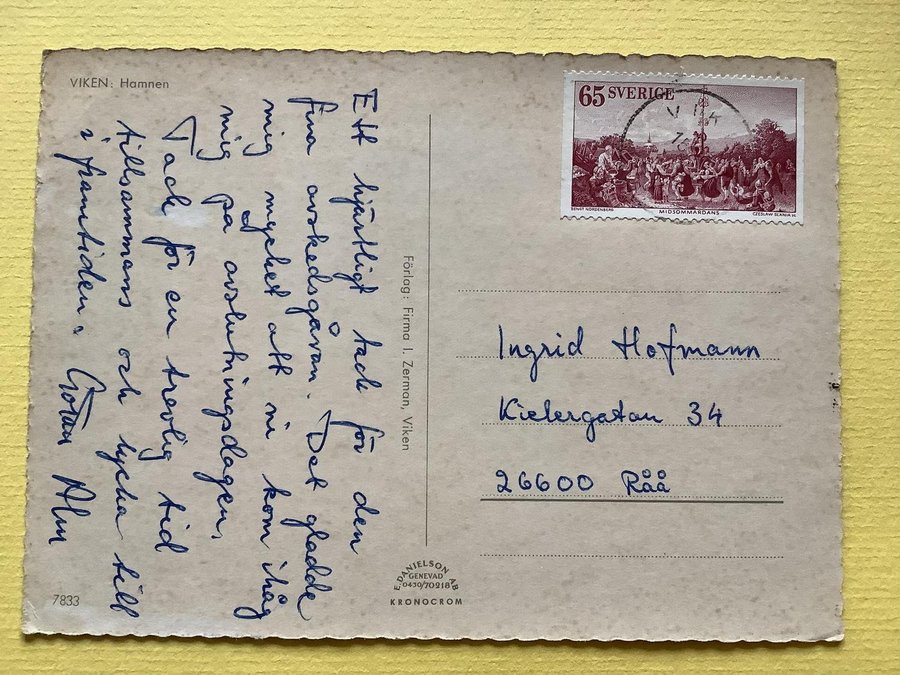 VIKEN: Hamnen
Ett hjärtligt tack för den
fina avskedsgåvan. Det gladde
mig mycket att ni kom ihåg
mig på avslutningsdagen.
Tack för en trevlig tid
tillsammans och lycka till
i framtiden.
Alm
7833
Förlag: Firma I. Zerman, Viken
E. DANIELSON AB
GENEVAD
0430/70218
KRONOCROM
65 SVERIGE
BENGT NORDENBERG
MIDSOMMARDANS
CZESLAW SLANIA SC
VIK
Ingrid Hofmann
Kielergatan 34
26600 Råå